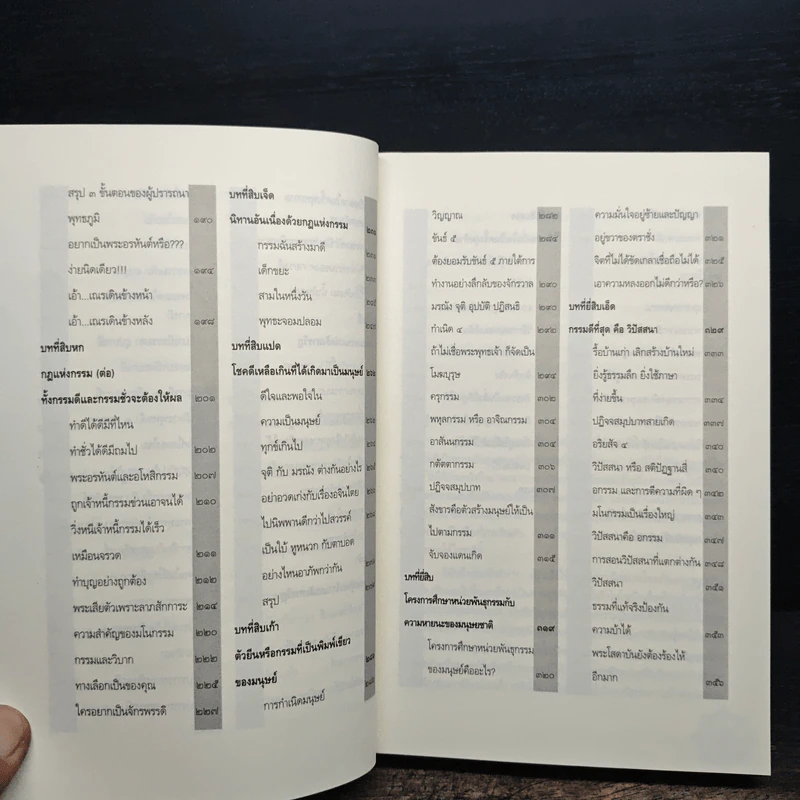 สรุป ๓ ขั้นตอนของผู้ปรารถนา
พุทธภูมิ ๑๙๐
อยากเป็นพระอรหันต์หรือ???
ง่ายนิดเดียว!!! ๑๙๔
เอ้า...เณรเดินข้างหน้า
เอ้า...เณรเดินข้างหลัง ๑๙๘
บทที่สิบหก
กฎแห่งกรรม (ต่อ)
ทั้งกรรมดีและกรรมชั่วจะต้องให้ผล ๒๐๑
ทำดีได้ดีมีที่ไหน
ทำชั่วได้ดีมีถมไป ๒๐๒
พระอรหันต์และอโหสิกรรม ๒๐๗
ถูกเจ้าหนี้กรรมข่วนเอาจนได้ ๒๑๐
วิ่งหนีเจ้าหนี้กรรมได้เร็ว
เหมือนจรวด ๒๑๑
ทำบุญอย่างถูกต้อง ๒๑๒
พระเสียตัวเพราะลาภสักการะ ๒๑๔
ความสำคัญของมโนกรรม ๒๒๐
กรรมและวิบาก ๒๒๒
ทางเลือกเป็นของคุณ ๒๒๕
ใครอยากเป็นจักรพรรดิ ๒๒๗
บทที่สิบเจ็ด
นิทานอันเนื่องด้วยกฎแห่งกรรม
กรรมฉันสร้างมาดี
เด็กขยะ
สามในหนึ่งวัน
พุทธะจอมปลอม
บทที่สิบแปด
โชคดีเหลือเกินที่ได้เกิดมาเป็นมนุษย์
ดีใจและพอใจใน
ความเป็นมนุษย์
ทุกข์เกินไป
จุติ กับ มรณัง ต่างกันอย่างไร
อย่าอวดเก่งกับเรื่องอจินไตย
ไปนิพพานดีกว่าไปสวรรค์
เป็นใบ้ หูหนวก กับตาบอด
อย่างไหนอาภัพกว่ากัน
สรุป
บทที่สิบเก้า
ตัวยีนหรือกรรมที่เป็นพิมพ์เขียว
ของมนุษย์
การกำเนิดมนุษย์
วิญญาณ ๒๘๒
ขันธ์ ๕ ๒๘๔
ต้องยอมรับขันธ์ ๕ ภายใต้การ
ทำงานอย่างลึกลับของจักรวาล ๒๙๐
มรณัง จุติ อุปบัติ ปฏิสนธิ ๒๙๐
กำเนิด ๔ ๒๙๒
ถ้าไม่เชื่อพระพุทธเจ้า ก็จัดเป็น
โมฆบุรุษ ๒๙๔
ครุกรรม ๓๐๒
พหุลกรรม หรือ อาจิณกรรม ๓๐๔
อาสันนกรรม ๓๐๔
กตัตตากรรม ๓๐๖
ปฏิจจสมุปบาท ๓๐๗
สังขารคือตัวสร้างมนุษย์ให้เป็น
ไปตามกรรม ๓๑๑
จับจองแดนเกิด ๓๑๕
บทที่ยี่สิบ
โครงการศึกษาหน่วยพันธุกรรมกับ
ความหายนะของมนุษยชาติ ๓๑๙
โครงการศึกษาหน่วยพันธุกรรม
ของมนุษย์คืออะไร? ๓๒๐
ความมั่นใจอยู่ซ้ายและปัญญา
อยู่ขวาของตราชั่ง ๓๒๑
จิตที่ไม่ได้ขัดเกลาเชื่อถือไม่ได้ ๓๒๕
เอาความหลงออกไม่ดีกว่าหรือ? ๓๒๖
บทที่ยี่สิบเอ็ด
กรรมดีที่สุด คือ วิปัสสนา ๓๒๙
รื้อบ้านเก่า เลิกสร้างบ้านใหม่ ๓๓๓
ยิ่งรู้ธรรมลึก ยิ่งใช้ภาษา
ที่ง่ายขึ้น ๓๓๔
ปฏิจจสมุปบาทสายเกิด ๓๓๗
อริยสัจ ๔ ๓๔๐
วิปัสสนา หรือ สติปัฏฐานสี่ ๓๔๐
อกรรม และการตีความที่ผิด ๆ ๓๔๒
มโนกรรมเป็นเรื่องใหญ่ ๓๔๓
วิปัสสนาคือ อกรรม ๓๔๗
การสอนวิปัสสนาที่แตกต่างกัน ๓๔๘
วิปัสสนา ๓๕๑
ธรรมที่แท้จริงป้องกัน
ความบ้าได้ ๓๕๓
พระโสดาบันยังต้องร้องไห้
อีกมาก ๓๕๖